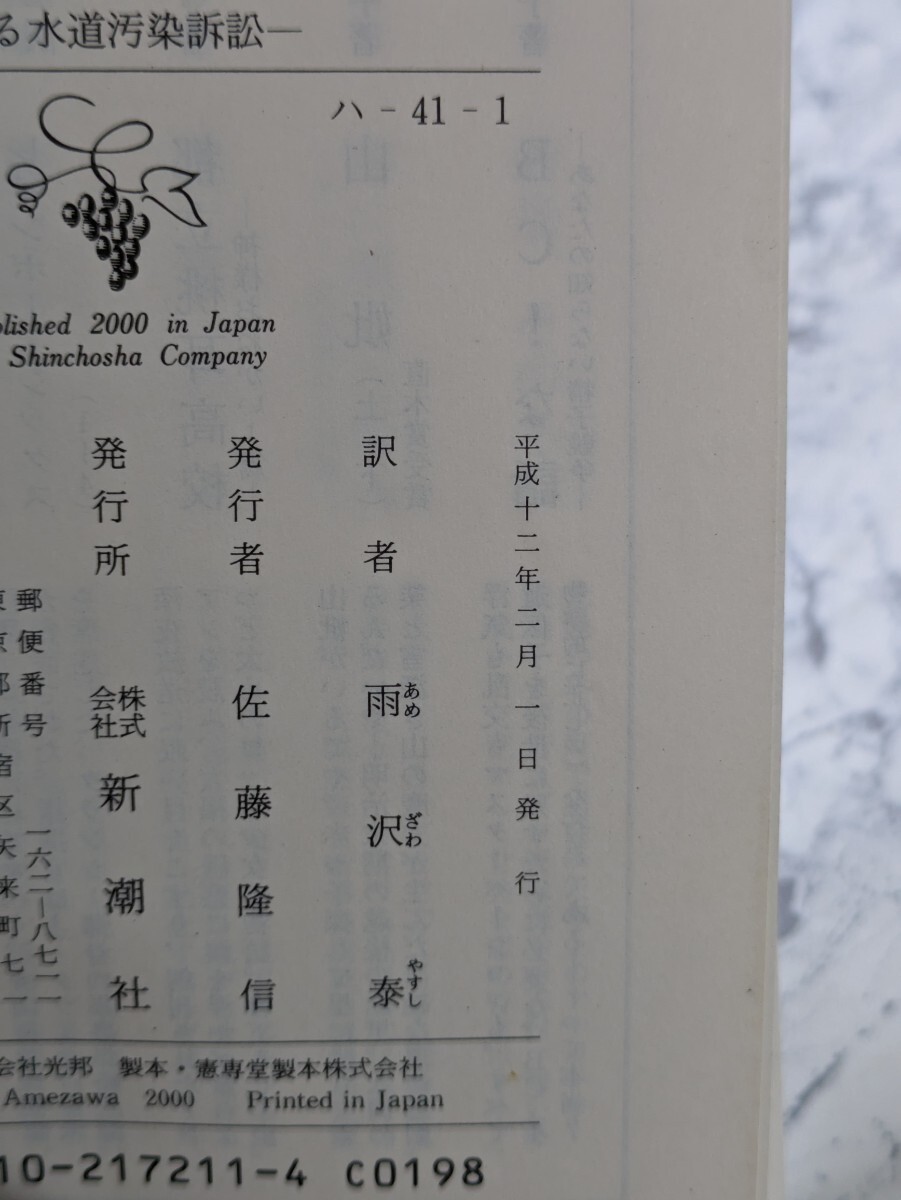 る水道汚染訴訟―
ハ - 41 - 1
blished 2000 in Japan
Shinchosha Company
平成十二年二月一日発行
訳者 雨沢 泰
あめ ざわ やすし
発行者 佐藤隆信
発行所 株式会社 新潮社
郵便番号 一六二―八七一一
東京都新宿区矢来町七一
会社光邦 製本・憲専堂製本株式会社
Amezawa 2000 Printed in Japan
10-217211-4 C0198